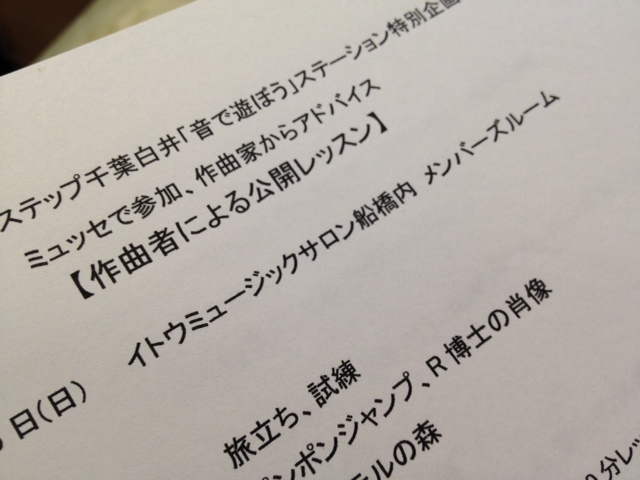 ステップ千葉白井「音で遊ぼう」ステーション特別企画
ミュッセで参加、作曲家からアドバイス
【作曲者による公開レッスン】
日(日) イトウミュージックサロン船橋内 メンバーズルーム
旅立ち、試練
ポンポンジャンプ、R博士の肖像
ルの森
分レッ